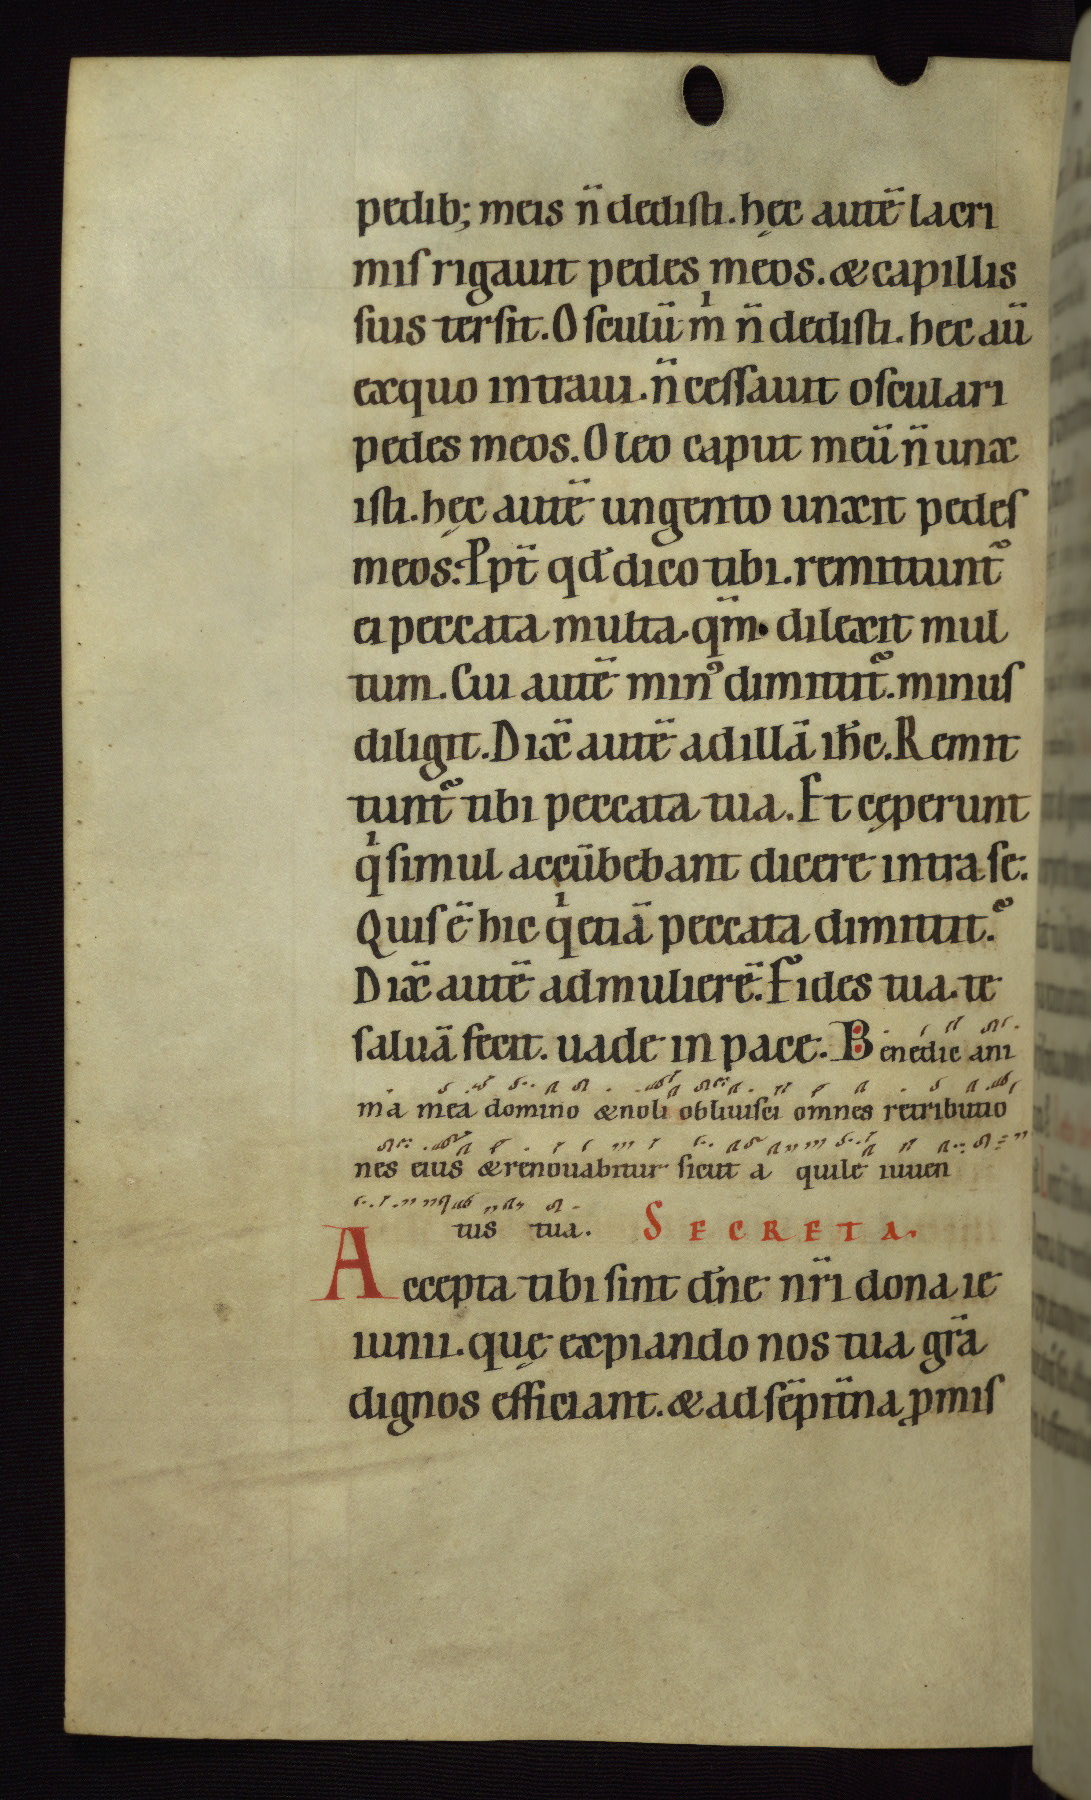 pedib; meis n̄ dedisti. hęc autē lacri
mis rigauit pedes meos. & capillis
suis tersit. Osculū m̄ n̄ dedisti. hec aū
exquo intraui. n̄ cessauit osculari
pedes meos. Oleo caput meū n̄ unx
isti. hęc autē ungento unxit pedes
meos. Ppt̄ qd̄ dico tibi. remittunt᷑
ei peccata multa. qm̄ dilexit mul
tum. Cui autē min᷒ dimittit᷑. minus
diligit. Dix̄ autē ad illā ihc̄. Remit
tunt᷑ tibi peccata tua. Et cęperunt
qͥ simul accūbebant dicere intra se.
Quis ē hic qͥ etiā peccata dimittit?
Dix̄ autē ad mulierē. Fides tua te
saluā fecit. uade in pace. Benedic ani
ma mea domino & noli obliuisci omnes retributio
nes eius & renouabitur sicut a quile iuuen
tus tua. SECRETA.
Accepta tibi sint dn̄e nr̄i dona ie
iunii. quę expiando nos tua grā
dignos efficiant. & ad sēpit̄na ꝓmis